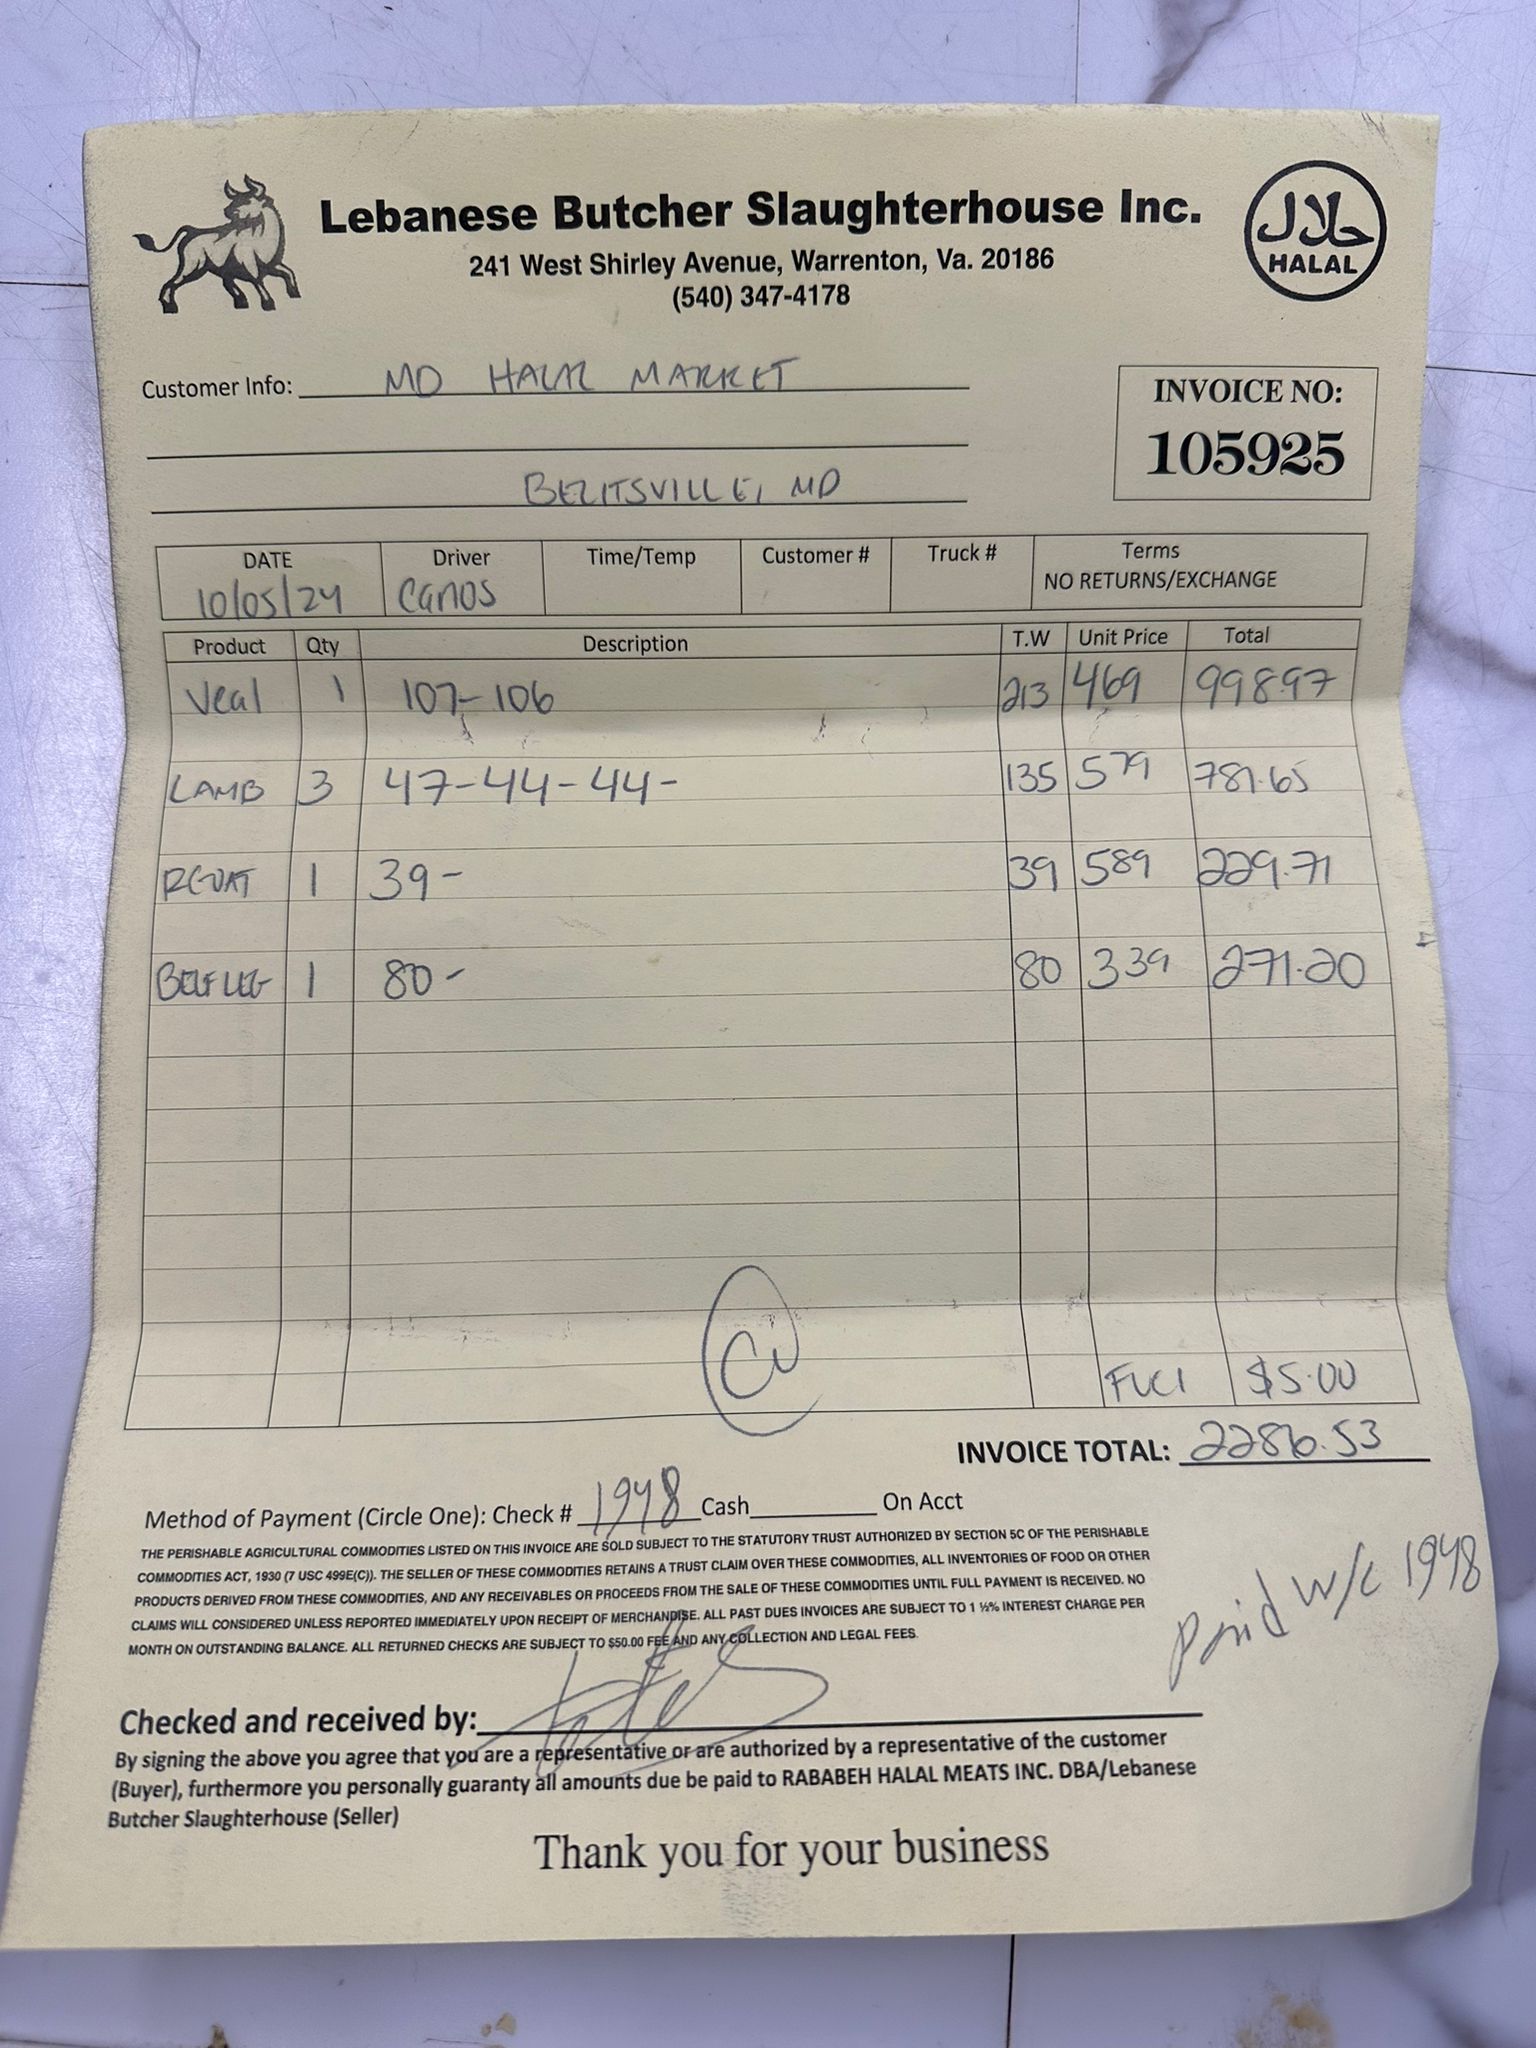 Lebanese Butcher Slaughterhouse Inc.
حلال
HALAL
241 West Shirley Avenue, Warrenton, Va. 20186
(540) 347-4178
Customer Info: MD HALAL MARKET
INVOICE NO:
105925
BELTSVILLE, MD
DATE Driver Time/Temp Customer # Truck # Terms
10/05/24 Carlos NO RETURNS/EXCHANGE
Product Qty Description T.W Unit Price Total
Veal 1 107-106 213 469 998.97
LAMB 3 47-44-44- 135 579 781.65
RGOAT 1 39- 39 589 229.71
BEEF LEG 1 80- 80 339 271.20
$5.00
INVOICE TOTAL: 2286.53
Method of Payment (Circle One): Check # 1948 Cash On Acct
THE PERISHABLE AGRICULTURAL COMMODITIES LISTED ON THIS INVOICE ARE SOLD SUBJECT TO THE STATUTORY TRUST AUTHORIZED BY SECTION 5C OF THE PERISHABLE
COMMODITIES ACT, 1930 (7 USC 499E(C)). THE SELLER OF THESE COMMODITIES RETAINS A TRUST CLAIM OVER THESE COMMODITIES, ALL INVENTORIES OF FOOD OR OTHER
PRODUCTS DERIVED FROM THESE COMMODITIES, AND ANY RECEIVABLES OR PROCEEDS FROM THE SALE OF THESE COMMODITIES UNTIL FULL PAYMENT IS RECEIVED. NO
CLAIMS WILL CONSIDERED UNLESS REPORTED IMMEDIATELY UPON RECEIPT OF MERCHANDISE. ALL PAST DUES INVOICES ARE SUBJECT TO 1 ½% INTEREST CHARGE PER
MONTH ON OUTSTANDING BALANCE. ALL RETURNED CHECKS ARE SUBJECT TO $50.00 FEE AND ANY COLLECTION AND LEGAL FEES.
Paid w/c 1948
Checked and received by:
By signing the above you agree that you are a representative or are authorized by a representative of the customer
(Buyer), furthermore you personally guaranty all amounts due be paid to RABABEH HALAL MEATS INC. DBA/Lebanese
Butcher Slaughterhouse (Seller)
Thank you for your business